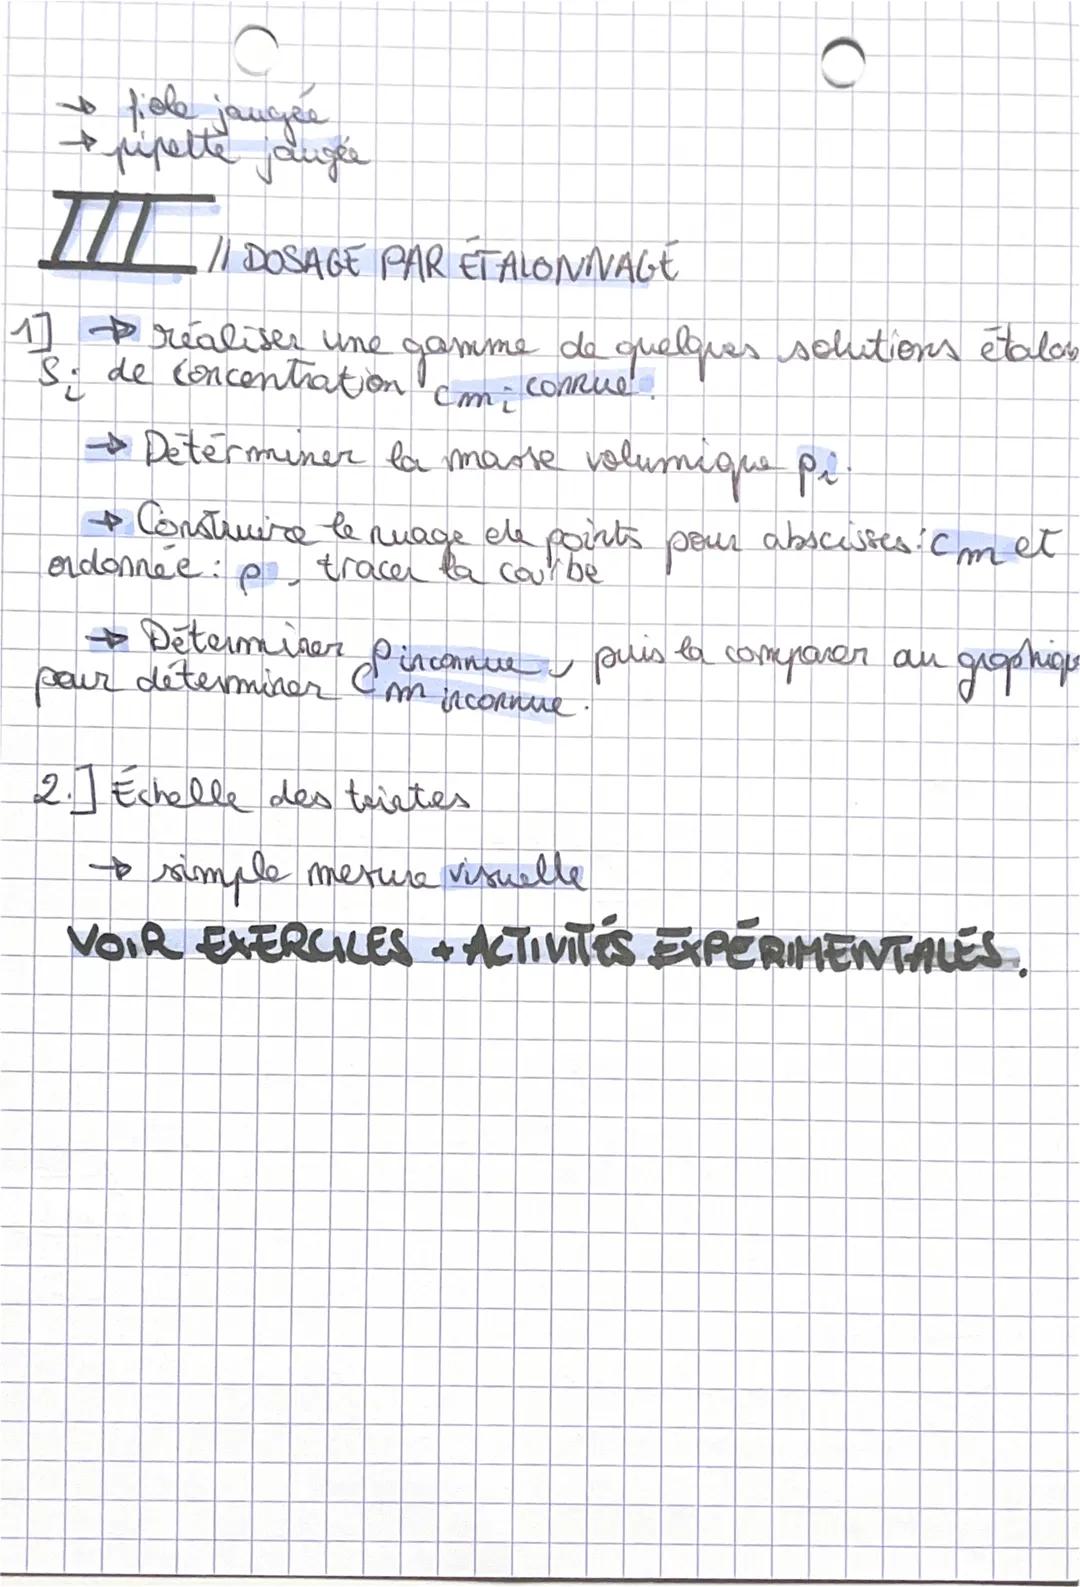 → fiole jaugée
→ pipette jaugée
III // DOSAGE PAR ÉTALONNAGE
1] → réaliser une gamme de quelques solutions étalon
Si de concentration cmi connue.
→ Déterminer la masse volumique ρi.
→ Construire le nuage de points pour abscisses : cm et
ordonnée : ρ, tracer la courbe
→ Déterminer ρ inconnue, puis la comparer au graphique
pour déterminer Cm inconnue.
2.] Échelle des teintes
→ simple mesure visuelle
VOIR EXERCICES + ACTIVITÉS EXPÉRIMENTALES.